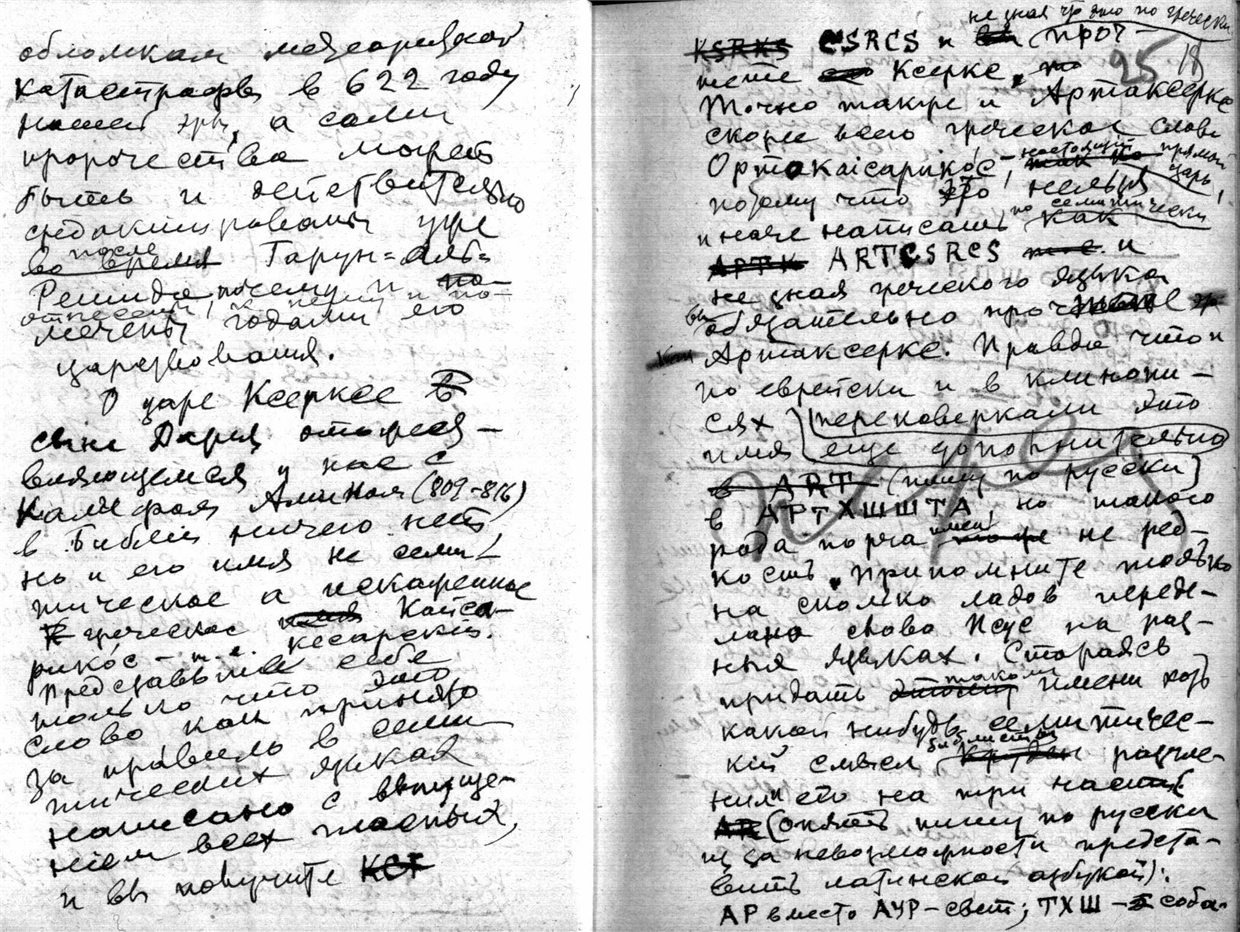 обломкам
катастрофы в 622 году
нашей эры, а сами
пророчества может
быть и действительно
средактированы уже
после
во время Гарун-Аль-
Решида, почему и по-
отнесены к нему и по-
мечены годами его
царствования.
О царе Ксерксе В
сыне Дария отожеств-
вляющемся у нас с
Калифом Амином (809-816)
в Библии ничего нет
но и его имя не семи-
тическое а искаженное
греческое Кайса-
рикос - т.е. кесарский.
Представьте себе
только что это
слово как принято
за правило в семи-
тических языках
написано с выпуще-
нием всех гласных,
и вы получите КСР
не зная что это по гречески
KSRKS CSRCS и вы проч-
25 18
тете Ксеркс, то
Точно также и Артаксеркс
скорее всего греческое слово
Ортокаісарикос, настоящий прямой
царь,
потому что это нельзя
по семитически
иначе написать как
АРТК ARTCSRCS и
не зная греческого языка
вы
обязательно прочтете
Артаксеркс. Правда что и
по еврейски и в клинопи-
сях исковеркали это
имя еще дополнительно
в ART (пишу по русски)
в АРТХШШТА, но такого
рода порча имен не ред-
кость. Припомните только
на сколько ладов переде-
лано слово Исус на раз-
ных языках. Стараясь
придать такому имени хоть
какой нибудь семитичес-
библисты
кий смысл расчле-
нили его на три части
AR (опять пишу по русски
из за невозможности предста-
вить латинской азбукой):
АР вместо АУР - свет; ТХШ - соба-